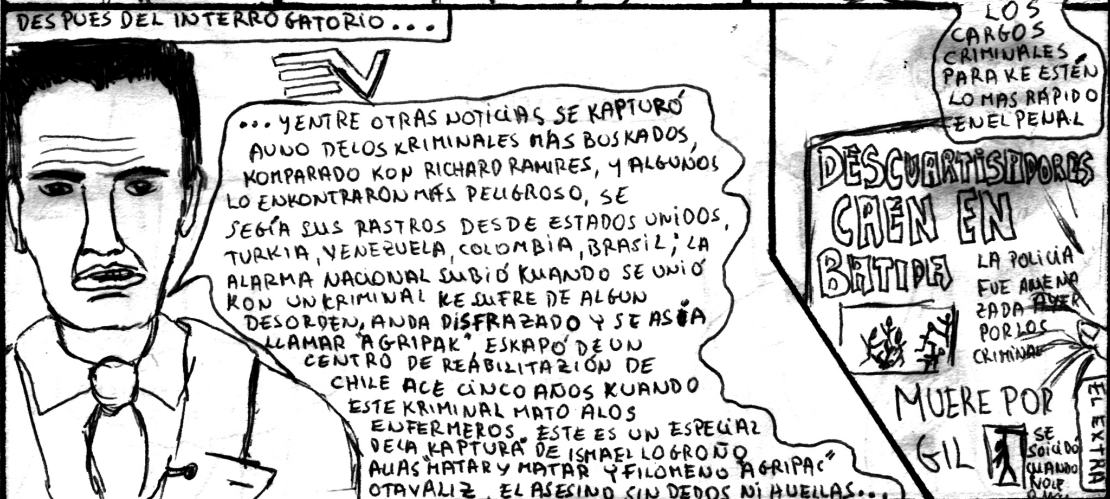 DESPUES DEL INTERROGATORIO...
EV
...Y ENTRE OTRAS NOTICIAS SE KAPTURÓ
A UNO DE LOS KRIMINALES MAS BUSKADOS,
KOMPARADO KON RICHARD RAMIRES, Y ALGUNOS
LO ENKONTRARON MÁS PELIGROSO, SE
SEGÍA SUS RASTROS DESDE ESTADOS UNIDOS,
TURKIA, VENEZUELA, COLOMBIA, BRASIL; LA
ALARMA NACIONAL SUBIÓ KUANDO SE UNIÓ
KON UN KRIMINAL KE SUFRE DE ALGUN
DESORDEN, ANDA DISFRAZADO Y SE ASIA
LLAMAR "AGRIPAK" ESKAPÓ DE UN
CENTRO DE REABILITAZIÓN DE
CHILE ACE CINCO AÑOS KUANDO
ESTE KRIMINAL MATO A LOS
ENFERMEROS. ESTE ES UN ESPECIAL
DE LA "KAPTURA" DE ISMAEL LOGROÑO
ALIAS "MATAR Y MATAR" Y FILOMENO "AGRIPAC"
OTAVALIZ, EL ASESINO SIN DEDOS NI HUELLAS...
LOS
CARGOS
CRIMINALES
PARA KE ESTÉN
LO MAS RÁPIDO
EN EL PENAL
DESCUARTISADORES
CAEN EN
BATIDA
LA POLICIA
FUE AMENA
ZADA AYER
POR LOS
CRIMINAL
MUERE POR
GIL
SE
SOICIDÓ
CUANDO
NO LE
EL EXTRA